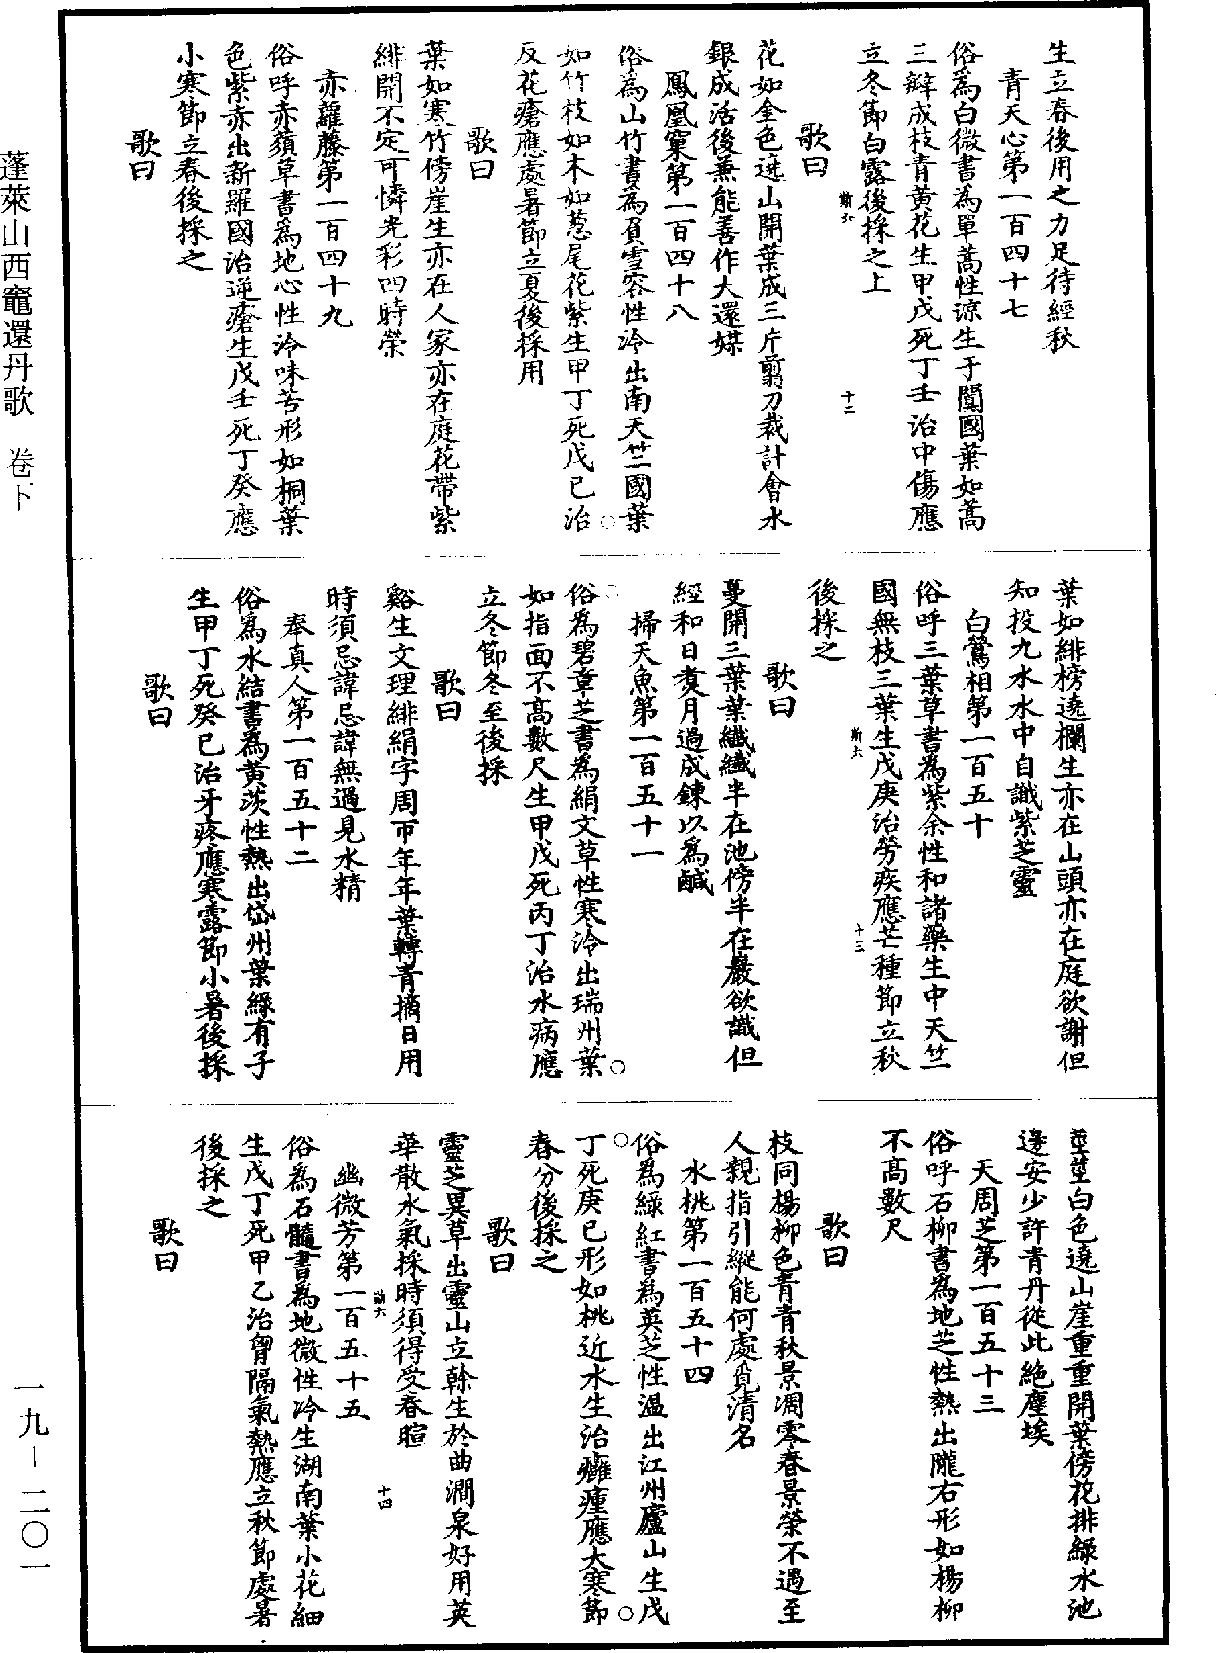 生立春後用之力足待經秋
青天心第一百四十七
俗為白微書為單蒿性涼生于闐國葉如蒿
三瓣成枝青黃花生甲戊死丁壬治中傷應
立冬節白露後採之上
歌曰
花如金色遶山開葉成三片剪刀裁計會水
銀成活後兼能善作大還媒
鳳凰窠第一百四十八
俗為山竹書為負雪容性冷出南天竺國葉
如竹枝如木如葱尾花紫生甲丁死戊己治
反花瘡應處暑節立夏後採用
歌曰
葉如寒竹傍崖生亦在人家亦在庭花帶紫
緋開不定可憐光彩四時榮
赤蘿藤第一百四十九
俗呼赤蘋草書為地心性冷味苦形如桐葉
色紫赤出新羅國治逆瘡生戊壬死丁癸應
小寒節立春後採之
歌曰
葉如緋榜遶欄生亦在山頭亦在庭欲謝但
知投九水水中自識紫芝靈
白鶯相第一百五十
俗呼三葉草書為紫余性和諸藥生中天竺
國無枝三葉生戊庚治勞疾應芒種節立秋
後採之
歌曰
蔓開三葉葉纖纖半在池傍半在巖欲識但
經和日煑月過成鍊以為鹹
掃天魚第一百五十一
俗為碧章芝書為絹文草性寒冷出瑞州葉
如指面不高數尺生甲戊死丙丁治水病應
立冬節冬至後採
歌曰
谿生文理緋絹字周帀年年葉轉青摘日用
時須忌諱忌諱無過見水精
奉真人第一百五十二
俗為水結書為黃茨性熱出岱州葉綠有子
生甲丁死癸巳治牙疼應寒露節小暑後採
歌曰
莖莖白色遶山崖重重開葉傍花排綠水池
邊安少許青丹從此絕塵埃
天周芝第一百五十三
俗呼石柳書為地芝性熱出隴右形如楊柳
不高數尺
歌曰
枝同楊柳色青青秋景凋零春景榮不遇至
人親指引縱能何處覓清名
水桃第一百五十四
俗為綠紅書為英芝性溫出江州廬山生戊
丁死庚巳形如桃近水生治癰瘇應大寒節
春分後採之
歌曰
靈芝異草出靈山立榦生於曲澗泉好用英
華散水氣採時須得受春暄
幽微芳第一百五十五
俗為石髓書為地微性冷生湖南葉小花細
生戊丁死甲乙治胷隔氣熱應立秋節處暑
後採之
歌曰
蓬萊山西竈還丹歌 卷下
一九－二〇一